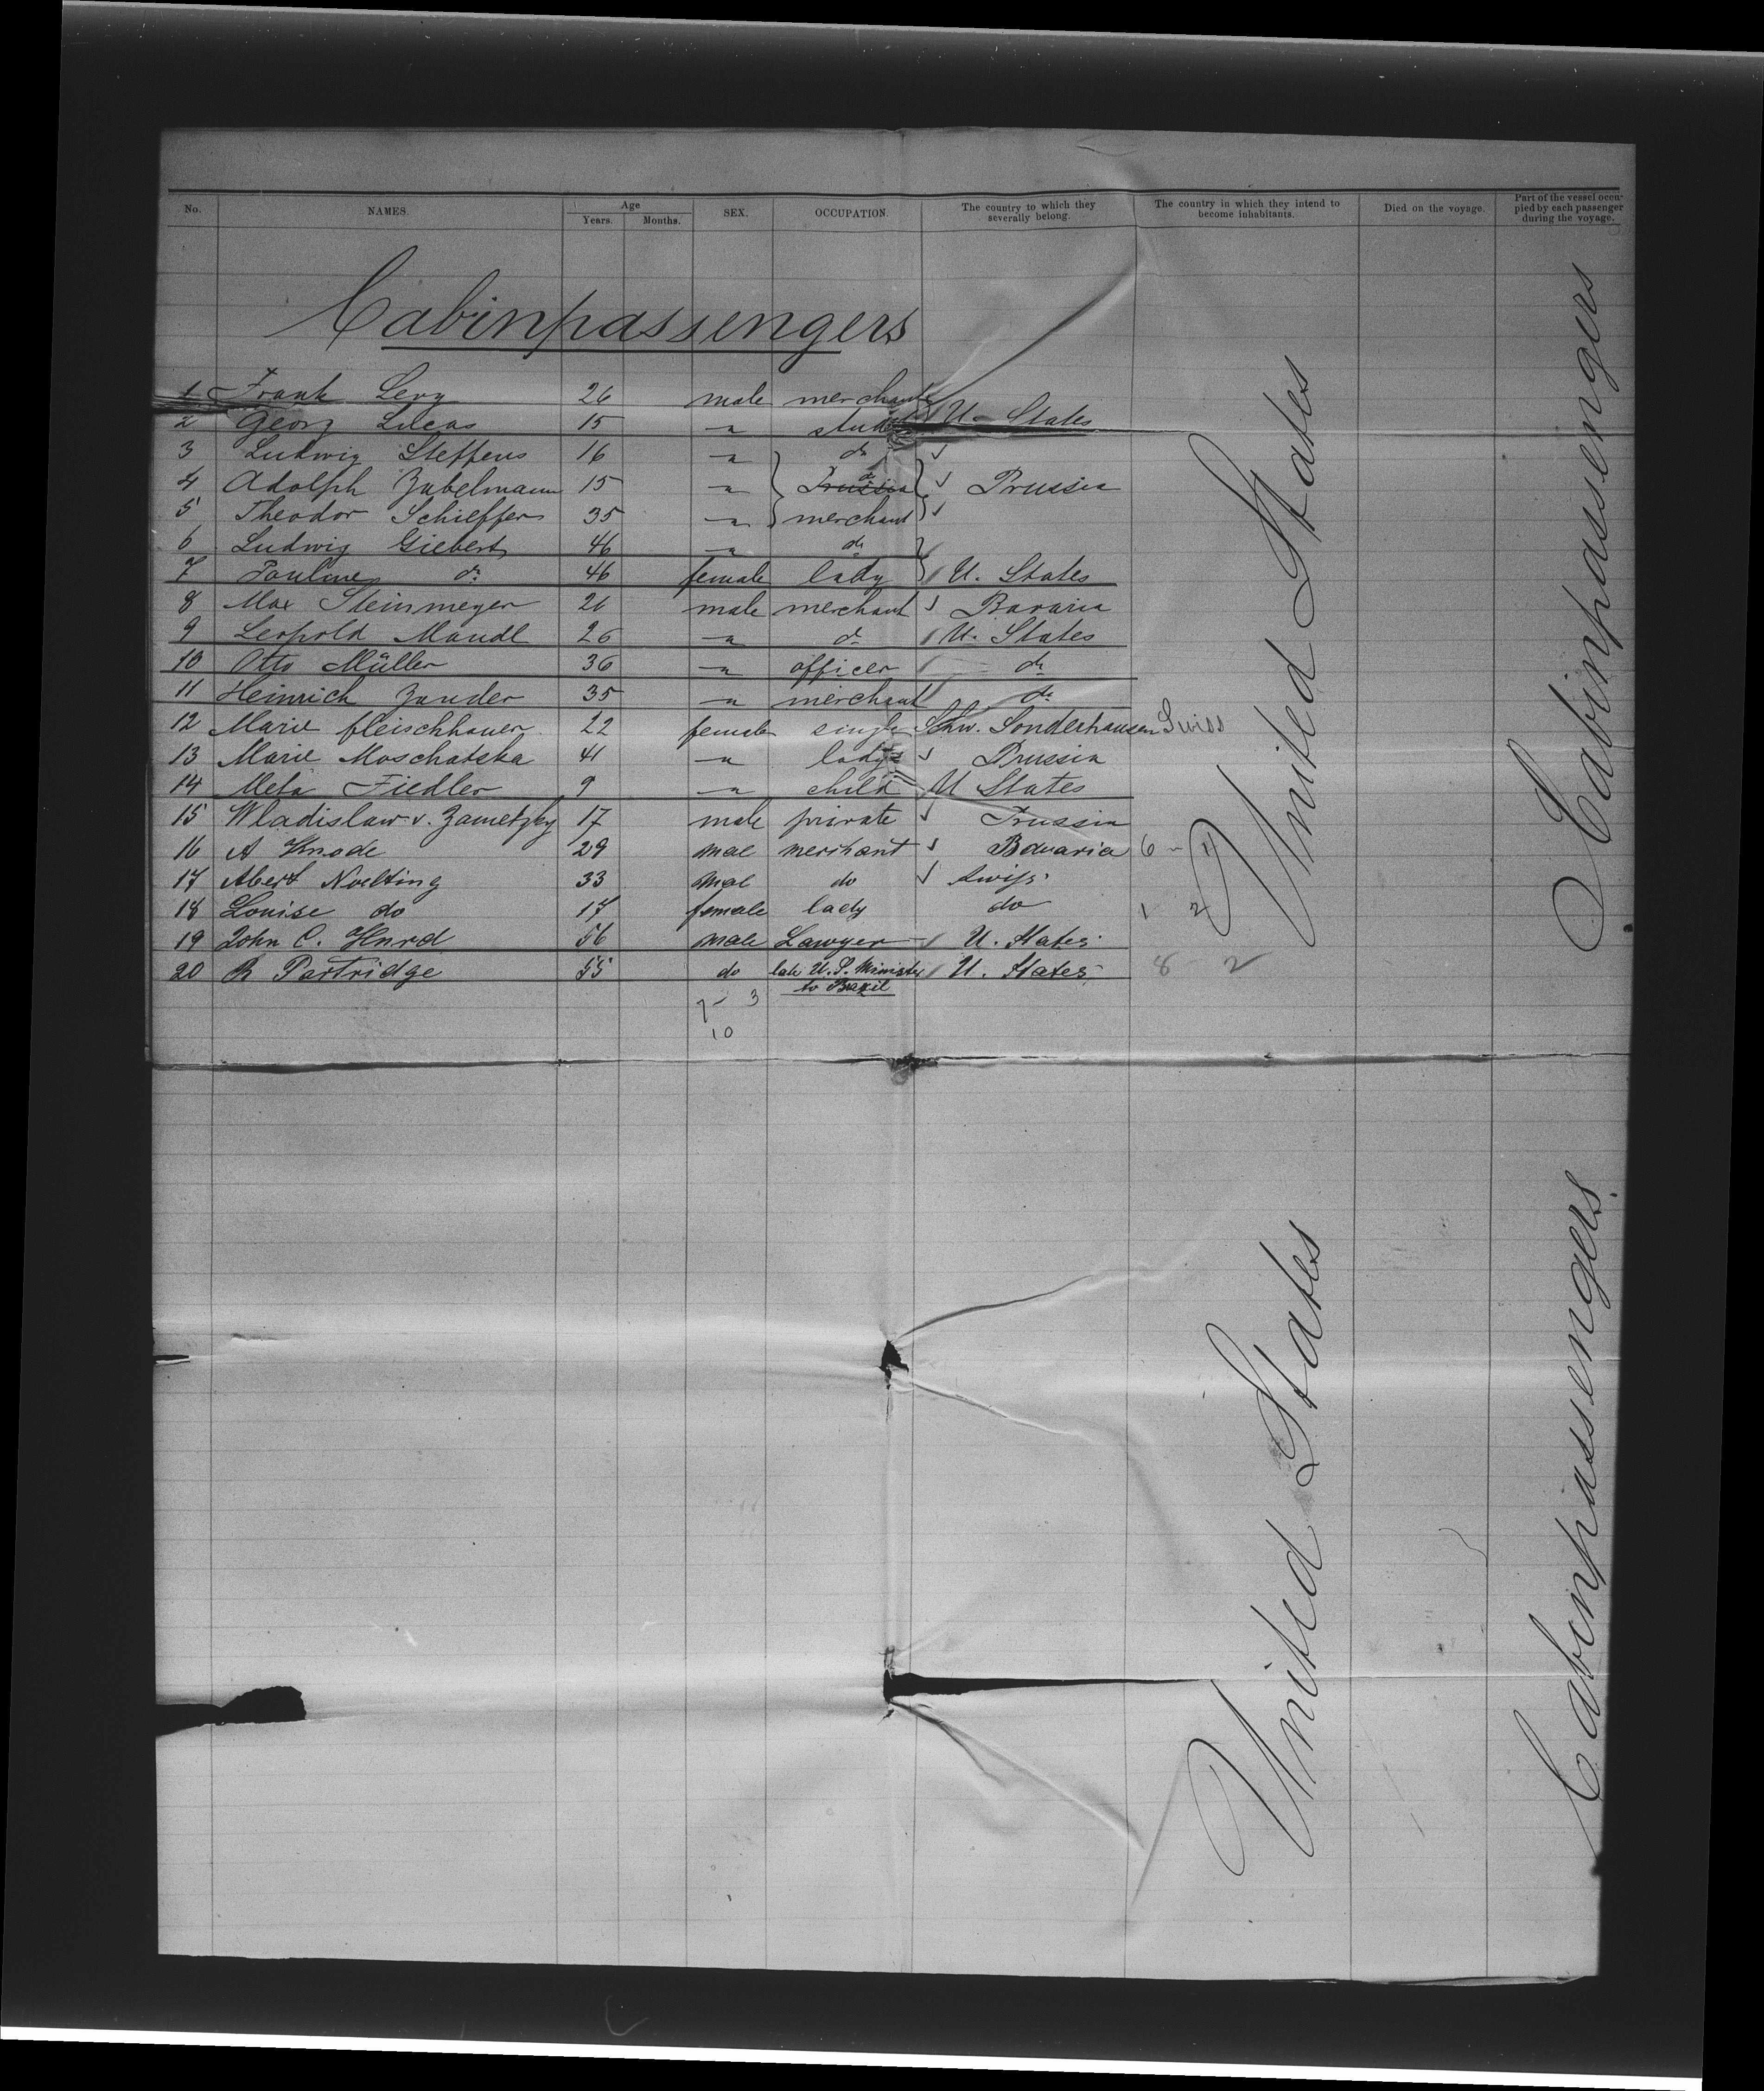 No. NAMES. Age Years. Months. SEX. OCCUPATION. The country to which they severally belong. The country in which they intend to become inhabitants. Died on the voyage. Part of the vessel occupied by each passenger during the voyage.
Cabinpassengers
1 Frank Levy 26 male merchant
2 Georg Lucas 15 " stud U. States
3 Ludwig Steffens 16 " do
4 Adolph Zabelmann 15 " do Prussia
5 Theodor Schieffer 35 " merchant
6 Ludwig Giebert 46 " do
7 Pauline do 46 female lady U. States
8 Max Steinmeyer 26 male merchant Bavaria
9 Leopold Mandl 26 " do U. States
10 Otto Müller 36 " officer do
11 Heinrich Zander 35 " merchant do
12 Marie fleischhauer 22 female single Schw. Sonderhausen Swiss
13 Marie Moschatska 41 " lady Prussia
14 Meta Fiedler 9 " child U States
15 Wladislaw v. Zametzky 17 male private Prussia
16 A Knode 29 mal merchant Bavaria 6 - 1
17 Abert Noelting 33 mal do Swiss
18 Louise do 17 female lady do 1 2
19 John C. Hurd 56 male Lawyer U. States
20 R Partridge 55 do late U.S. Minister U. States 8 - 2
to Brazil
7 - 3
10
United States
Cabinpassengers
United States
Cabinpassengers.